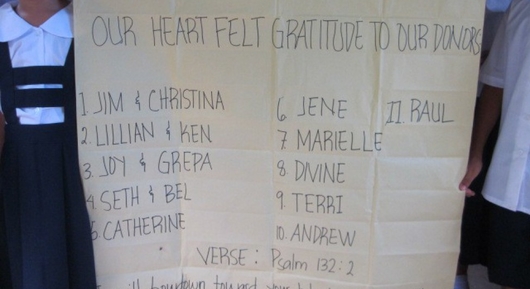 OUR HEART FELT GRATITUDE TO OUR DONORS
1 JIM & CHRISTINA
2. LILLIAN & KEN
3. JOY & GREPA
4. SETH & BEL
5. CATHERINE
6 JENE
7 MARIELLE
8. DIVINE
9. TERRI
10. ANDREW
11. RAUL
VERSE : Psalm 132:2
will bow down toward your